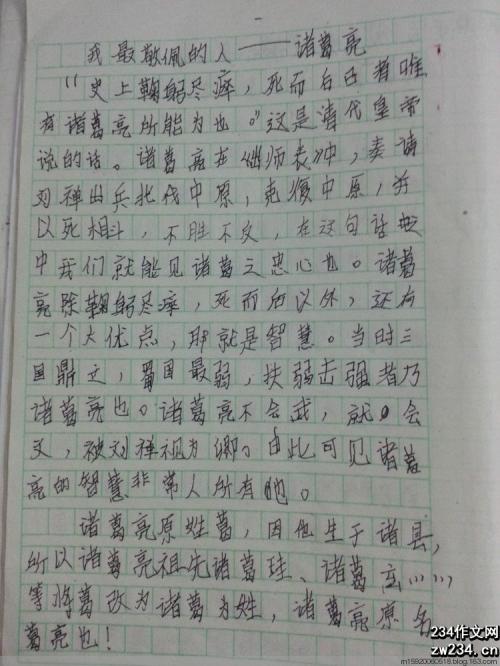 我最敬佩的人——诸葛亮
“史上鞠躬尽瘁，死而后已者唯
有诸葛亮所能为也。”这是清代皇帝
说的话。诸葛亮在《出师表》中，奏请
刘禅出兵北伐中原，克复中原，并
以死相斗，不胜不义，在这句话
中我们就能见诸葛之忠心也。诸葛
亮除鞠躬尽瘁，死而后以外，还有
一个大优点，那就是智慧。当时三
国鼎立，蜀国最弱，扶弱击强者乃
诸葛亮也。诸葛亮不会武，就会
文，被刘禅视为卿。由此可见诸葛
亮的智慧非常人所有也。
诸葛亮原姓葛，因他生于诸县，
所以诸葛亮祖先诸葛珪、诸葛玄……
等将葛改为诸葛为姓，诸葛亮原名
葛亮也！
234作文网
zw234.cn
m15920060518.blog.163.com